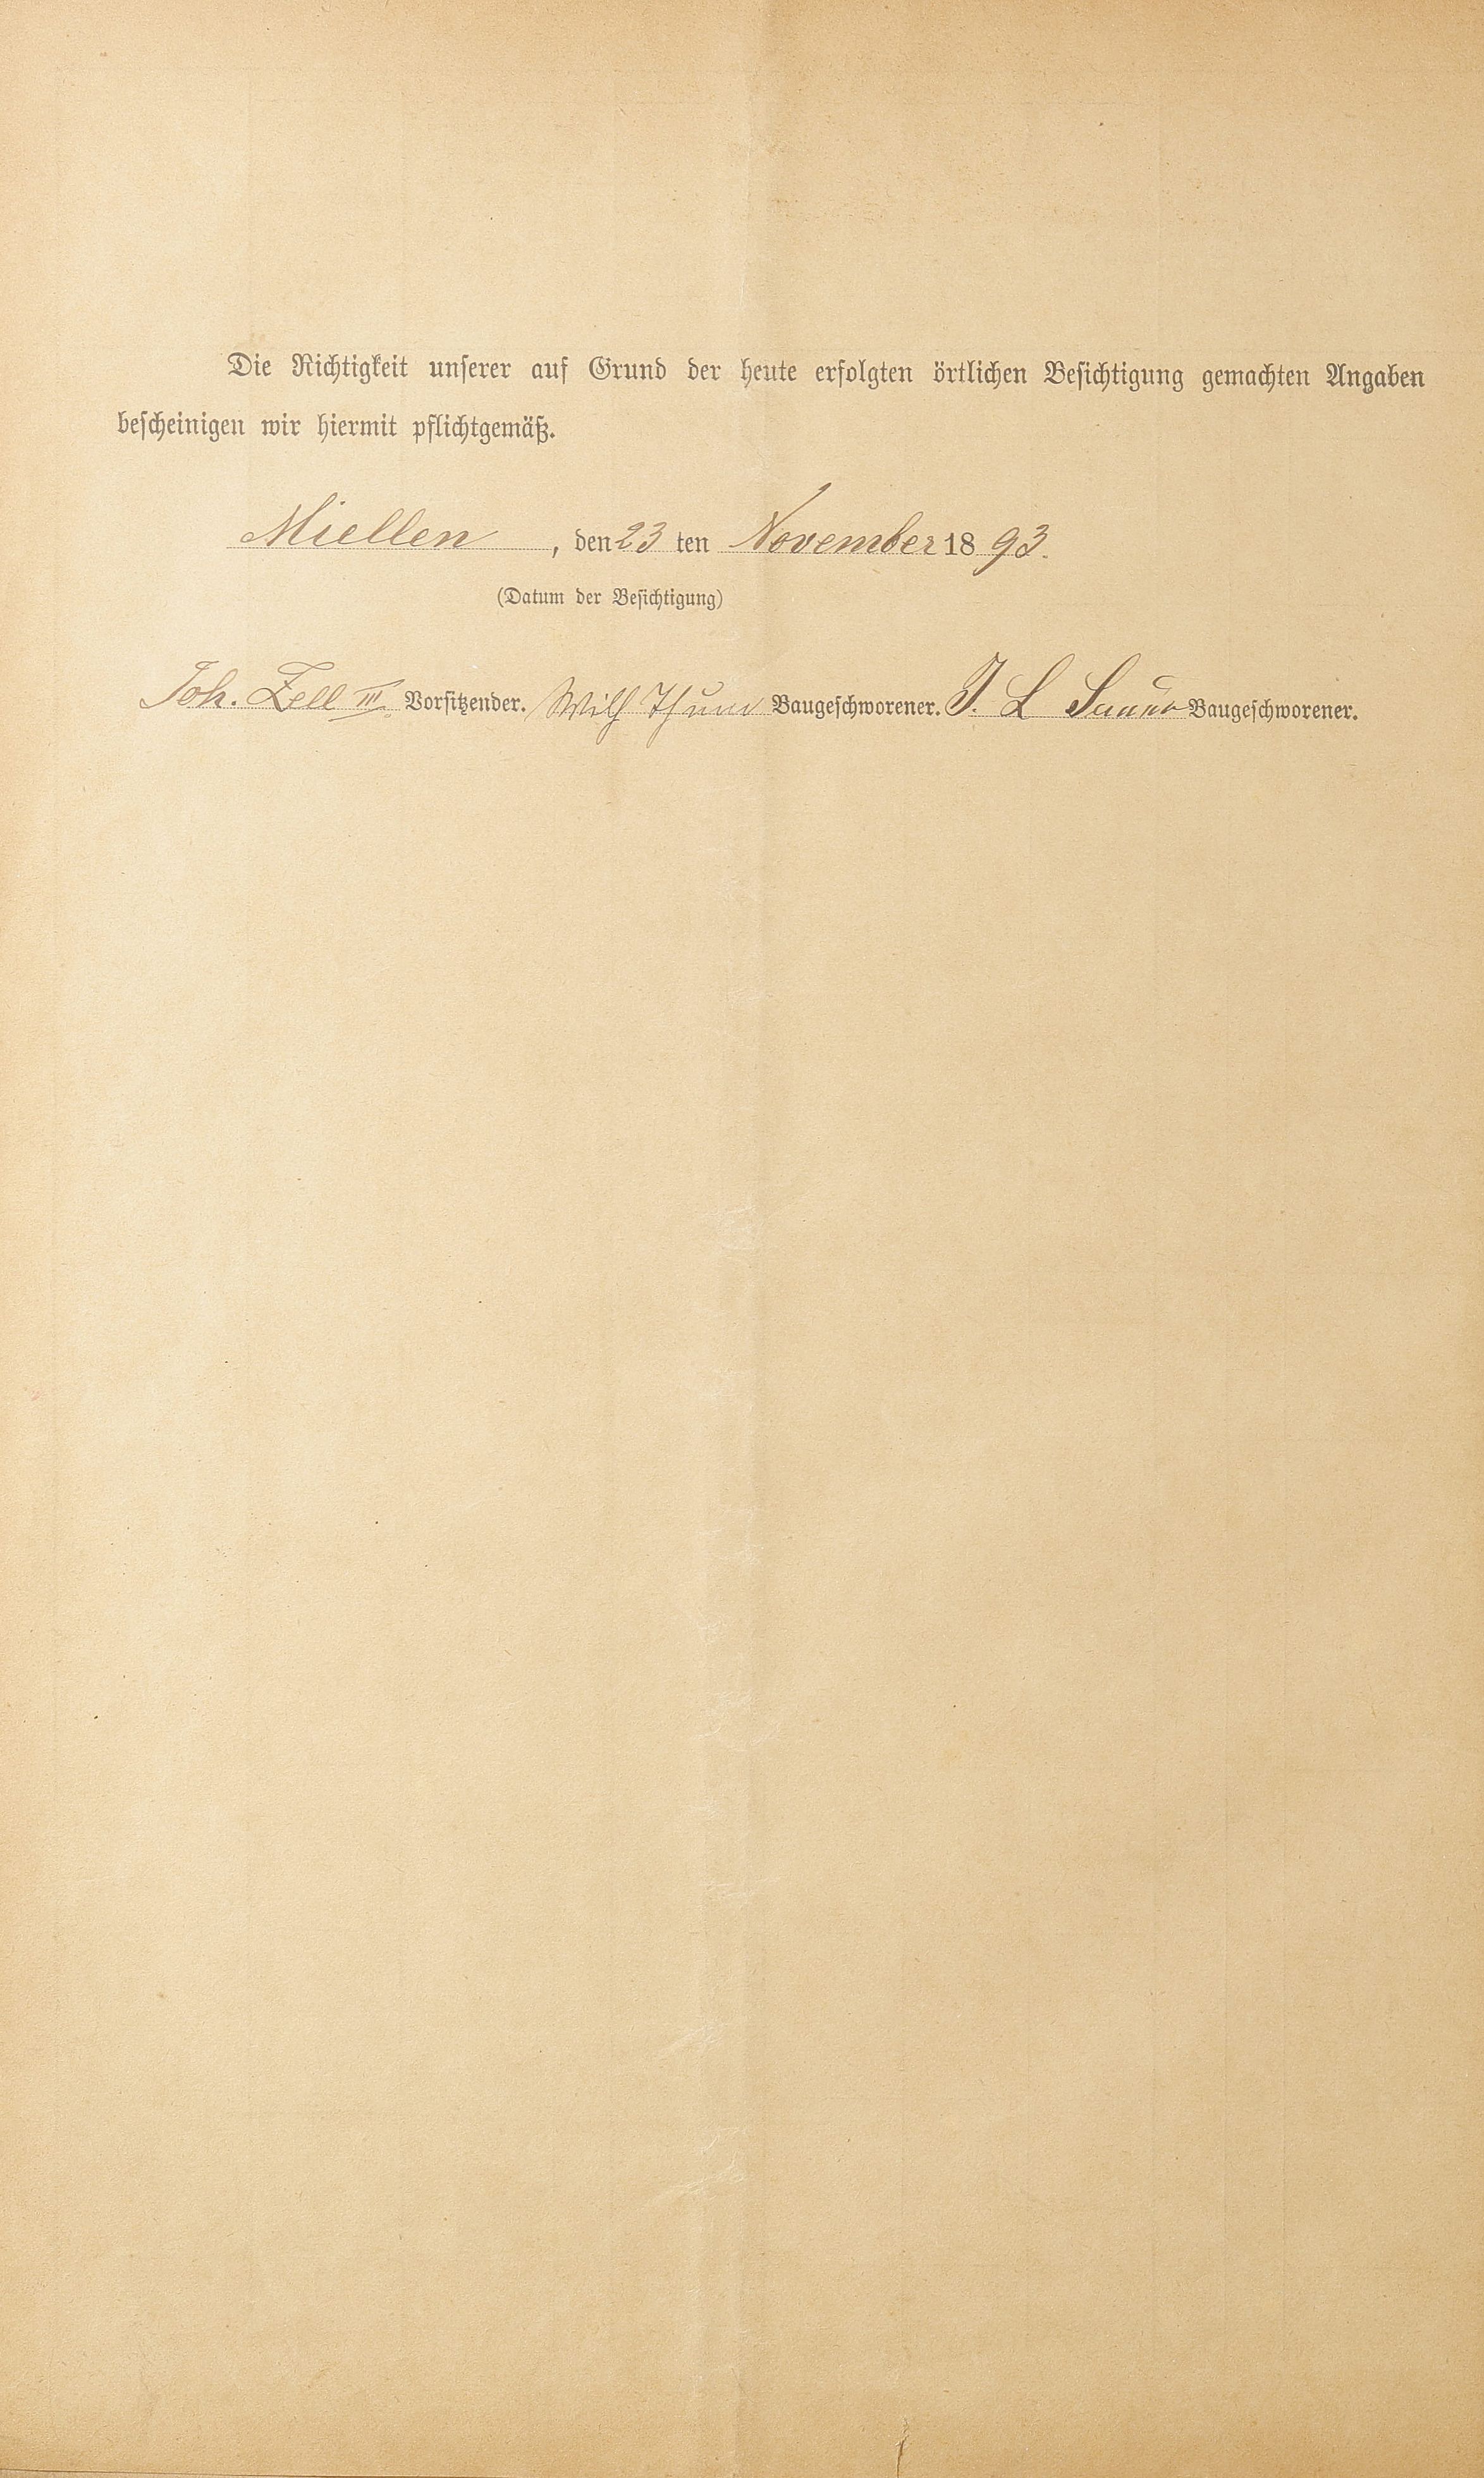 Die Richtigkeit unserer auf Grund der heute erfolgten örtlichen Besichtigung gemachten Angaben
bescheinigen wir hiermit pflichtgemäß.
Miellen, den 23 ten November 1893.
(Datum der Besichtigung)
Joh. Zell III. Vorsitzender. Wilh Baugeschworener. J. L Baugeschworener.